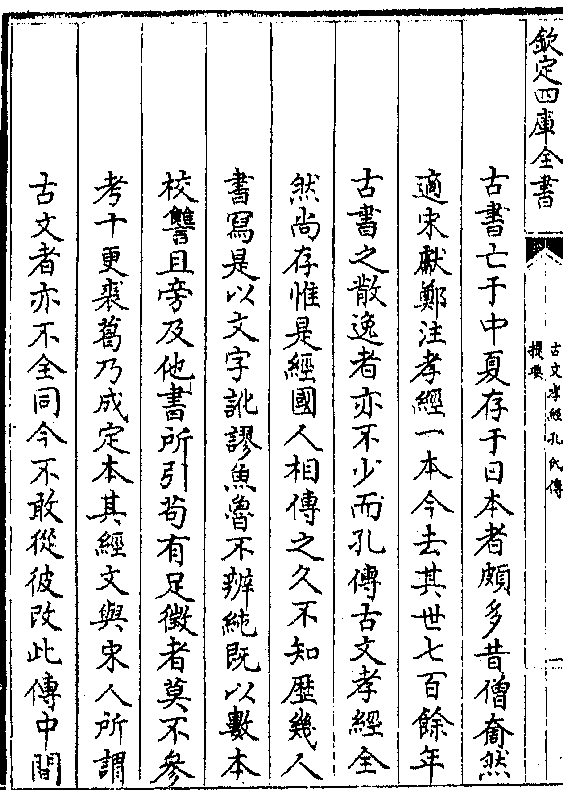 欽定四庫全書
古文孝經孔氏傳
提要
古書亡于中夏存于日本者頗多昔僧奝然
適宋獻鄭注孝經一本今去其世七百餘年
古書之散逸者亦不少而孔傳古文孝經全
然尚存惟是經國人相傳之久不知歷幾人
書寫是以文字訛謬魚魯不辨純既以數本
校讐且旁及他書所引茍有足徵者莫不參
考十更裘葛乃成定本其經文與宋人所謂
古文者亦不全同今不敢從彼改此傳中間